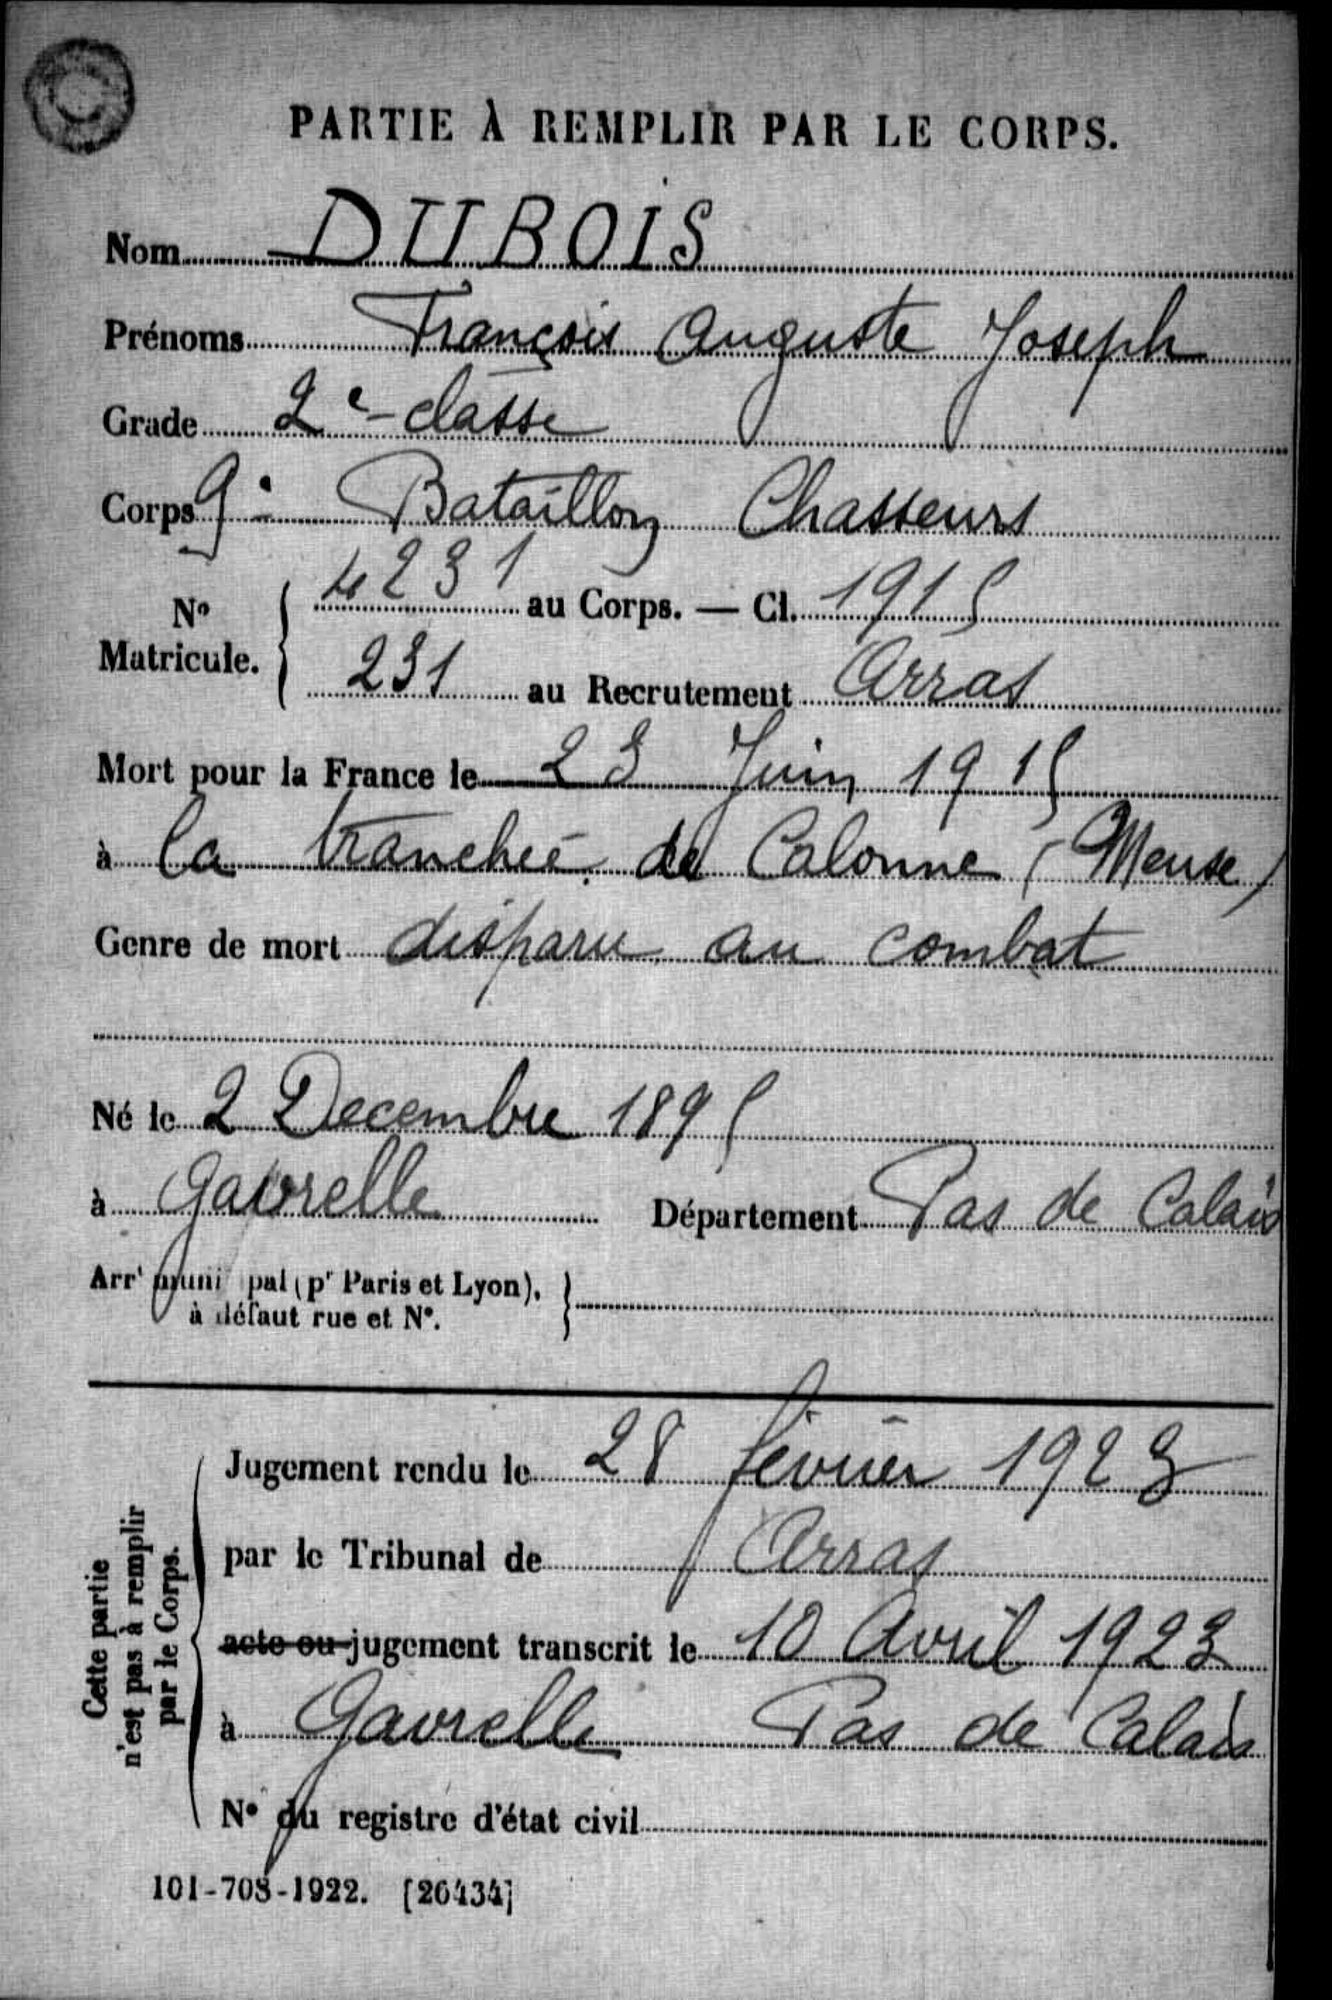 PARTIE À REMPLIR PAR LE CORPS.
Nom DUBOIS
Prénoms François Auguste Joseph
Grade 2e classe
Corps 9e Bataillon Chasseurs
No Matricule. { 4231 au Corps. — Cl. 1915
231 au Recrutement Arras
Mort pour la France le 23 Juin 1915
à la tranchée de Calonne (Meuse)
Genre de mort disparu au combat
Né le 2 Decembre 1895
à Gavrelle Département Pas de Calais
Arrt muni pal (pr Paris et Lyon),
à défaut rue et No. }
Cette partie
n'est pas à remplir
par le Corps.
Jugement rendu le 28 février 1923
par le Tribunal de Arras
acte ou jugement transcrit le 10 Avril 1923
à Gavrelle Pas de Calais
No du registre d'état civil
101-708-1922. [26434]